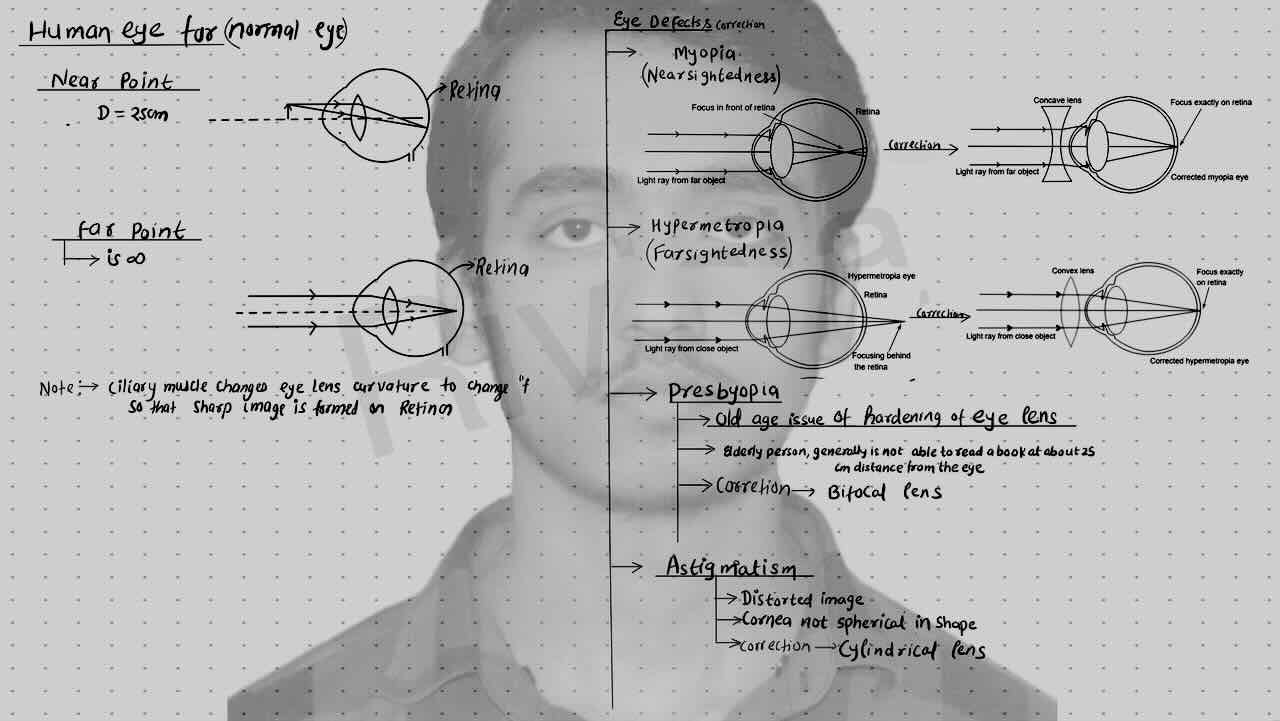 Human eye for (normal eye)
Near Point
D = 25cm
Retina
Far Point
is ∞
Retina
Note :→ Ciliary muscle changes eye lens curvature to change "f
So that sharp image is formed on Retina
Eye Defects Correction
Myopia
(Nearsightedness)
Focus in front of retina
Retina
Light ray from far object
Correction
Concave lens
Focus exactly on retina
Light ray from far object
Corrected myopia eye
Hypermetropia
(Farsightedness)
Hypermetropia eye
Retina
Light ray from close object
Focusing behind
the retina
Correction
Convex lens
Focus exactly
on retina
Light ray from close object
Corrected hypermetropia eye
Presbyopia
Old age issue of hardening of eye lens
Elderly person, generally is not able to read a book at about 25
cm distance from the eye
Corretion → Bifocal lens
Astigmatism
Distorted image
Cornea not spherical in shape
Correction → Cylindrical lens